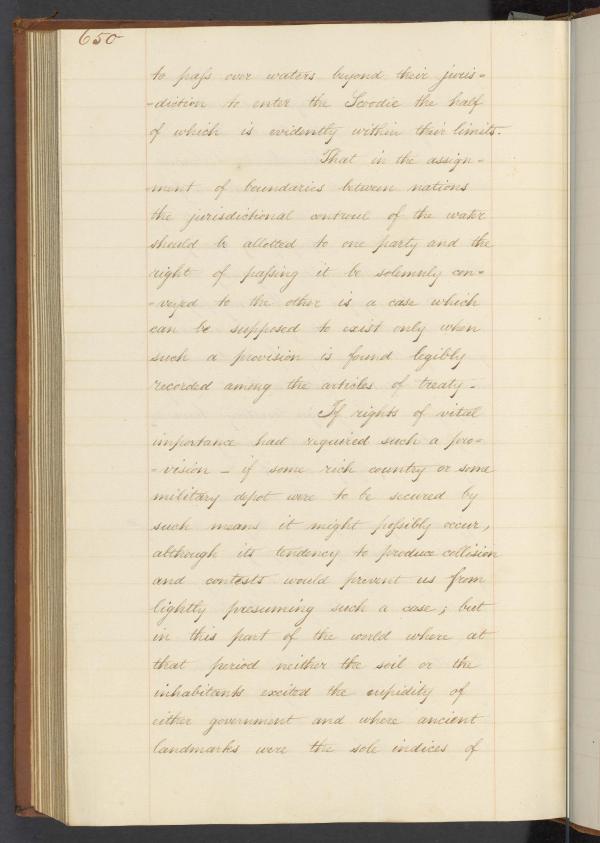 650
to pass over waters beyond their juris-
-diction to enter the Scoodic the half
of which is evidently within their limits.
That in the assign-
ment of boundaries between nations
the jurisdictional controul of the water
should be allotted to one party and the
right of passing it be solemnly con-
-veyed to the other is a case which
can be supposed to exist only when
such a provision is found legibly
recorded among the articles of treaty -
If rights of vital
importance had required such a pro-
-vision - if some rich country or some
military depot were to be secured by
such means it might possibly occur,
although its tendency to produce collision
and contests would prevent us from
lightly presuming such a case; but
in this part of the world where at
that period neither the soil or the
inhabitants excited the cupidity of
either government and where ancient
landmarks were the sole indices of